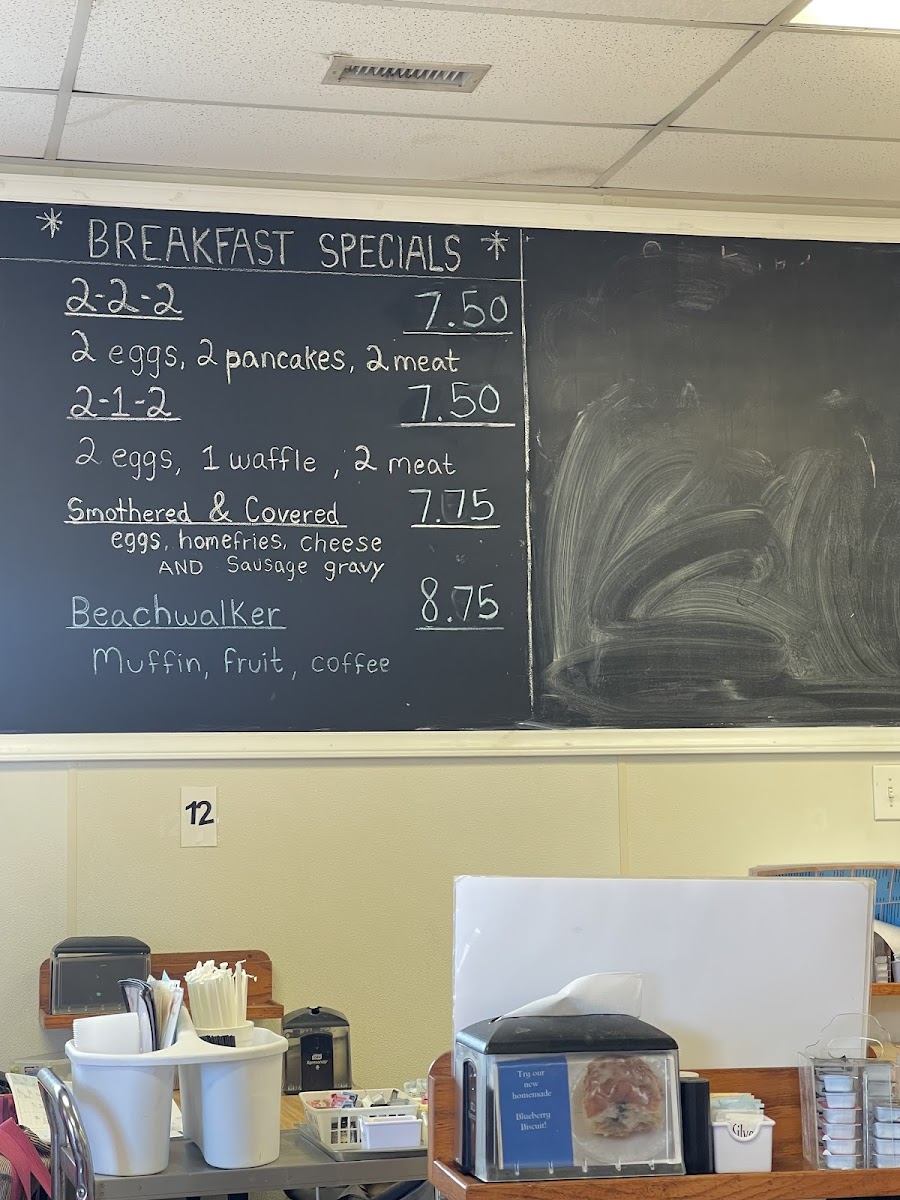 * BREAKFAST SPECIALS *
2-2-2 7.50
2 eggs, 2 pancakes, 2 meat
2-1-2 7.50
2 eggs, 1 waffle, 2 meat
Smothered & Covered 7.75
eggs, homefries, cheese
AND Sausage gravy
Beachwalker 8.75
Muffin, fruit, coffee
12
Try our
new
homemade
Blueberry
Biscuit!